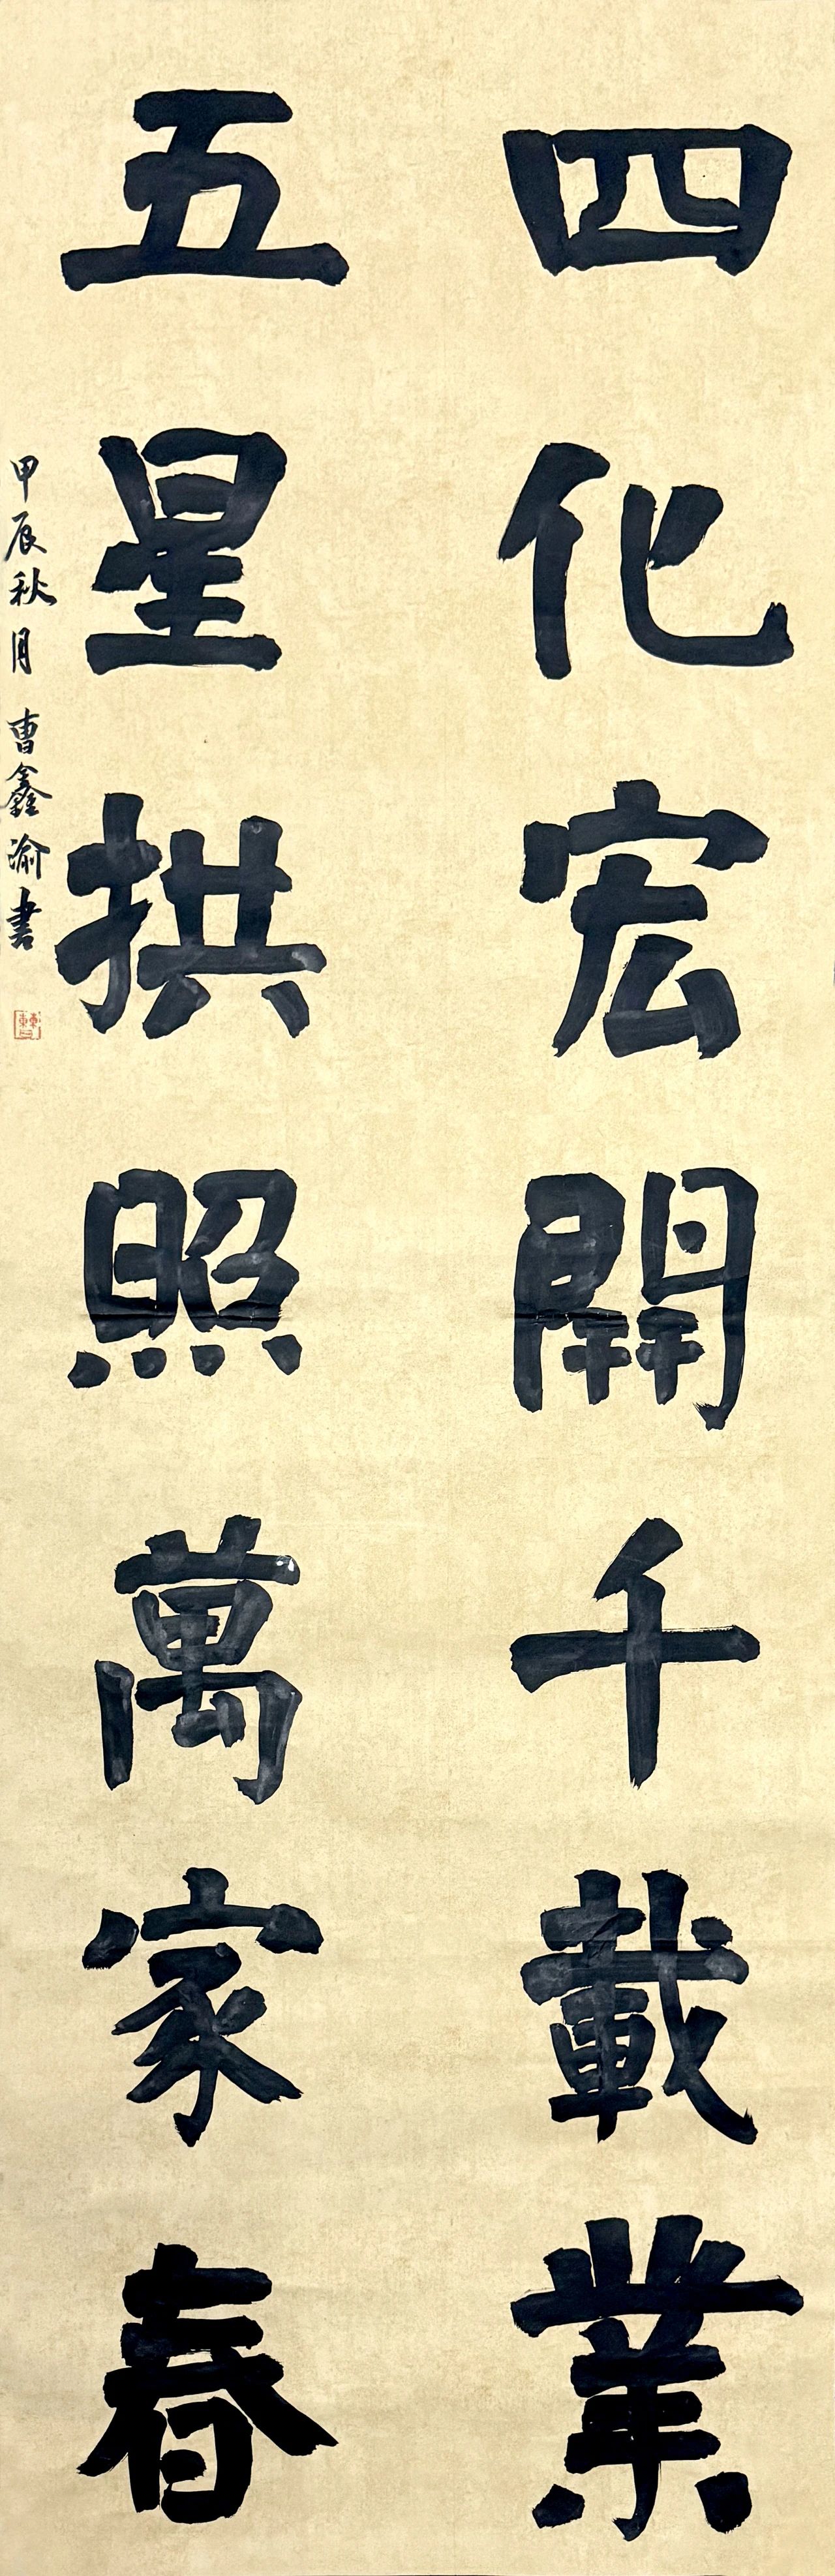 四化宏開千載業
五星拱照萬家春
甲辰秋月 曹鑫渝書